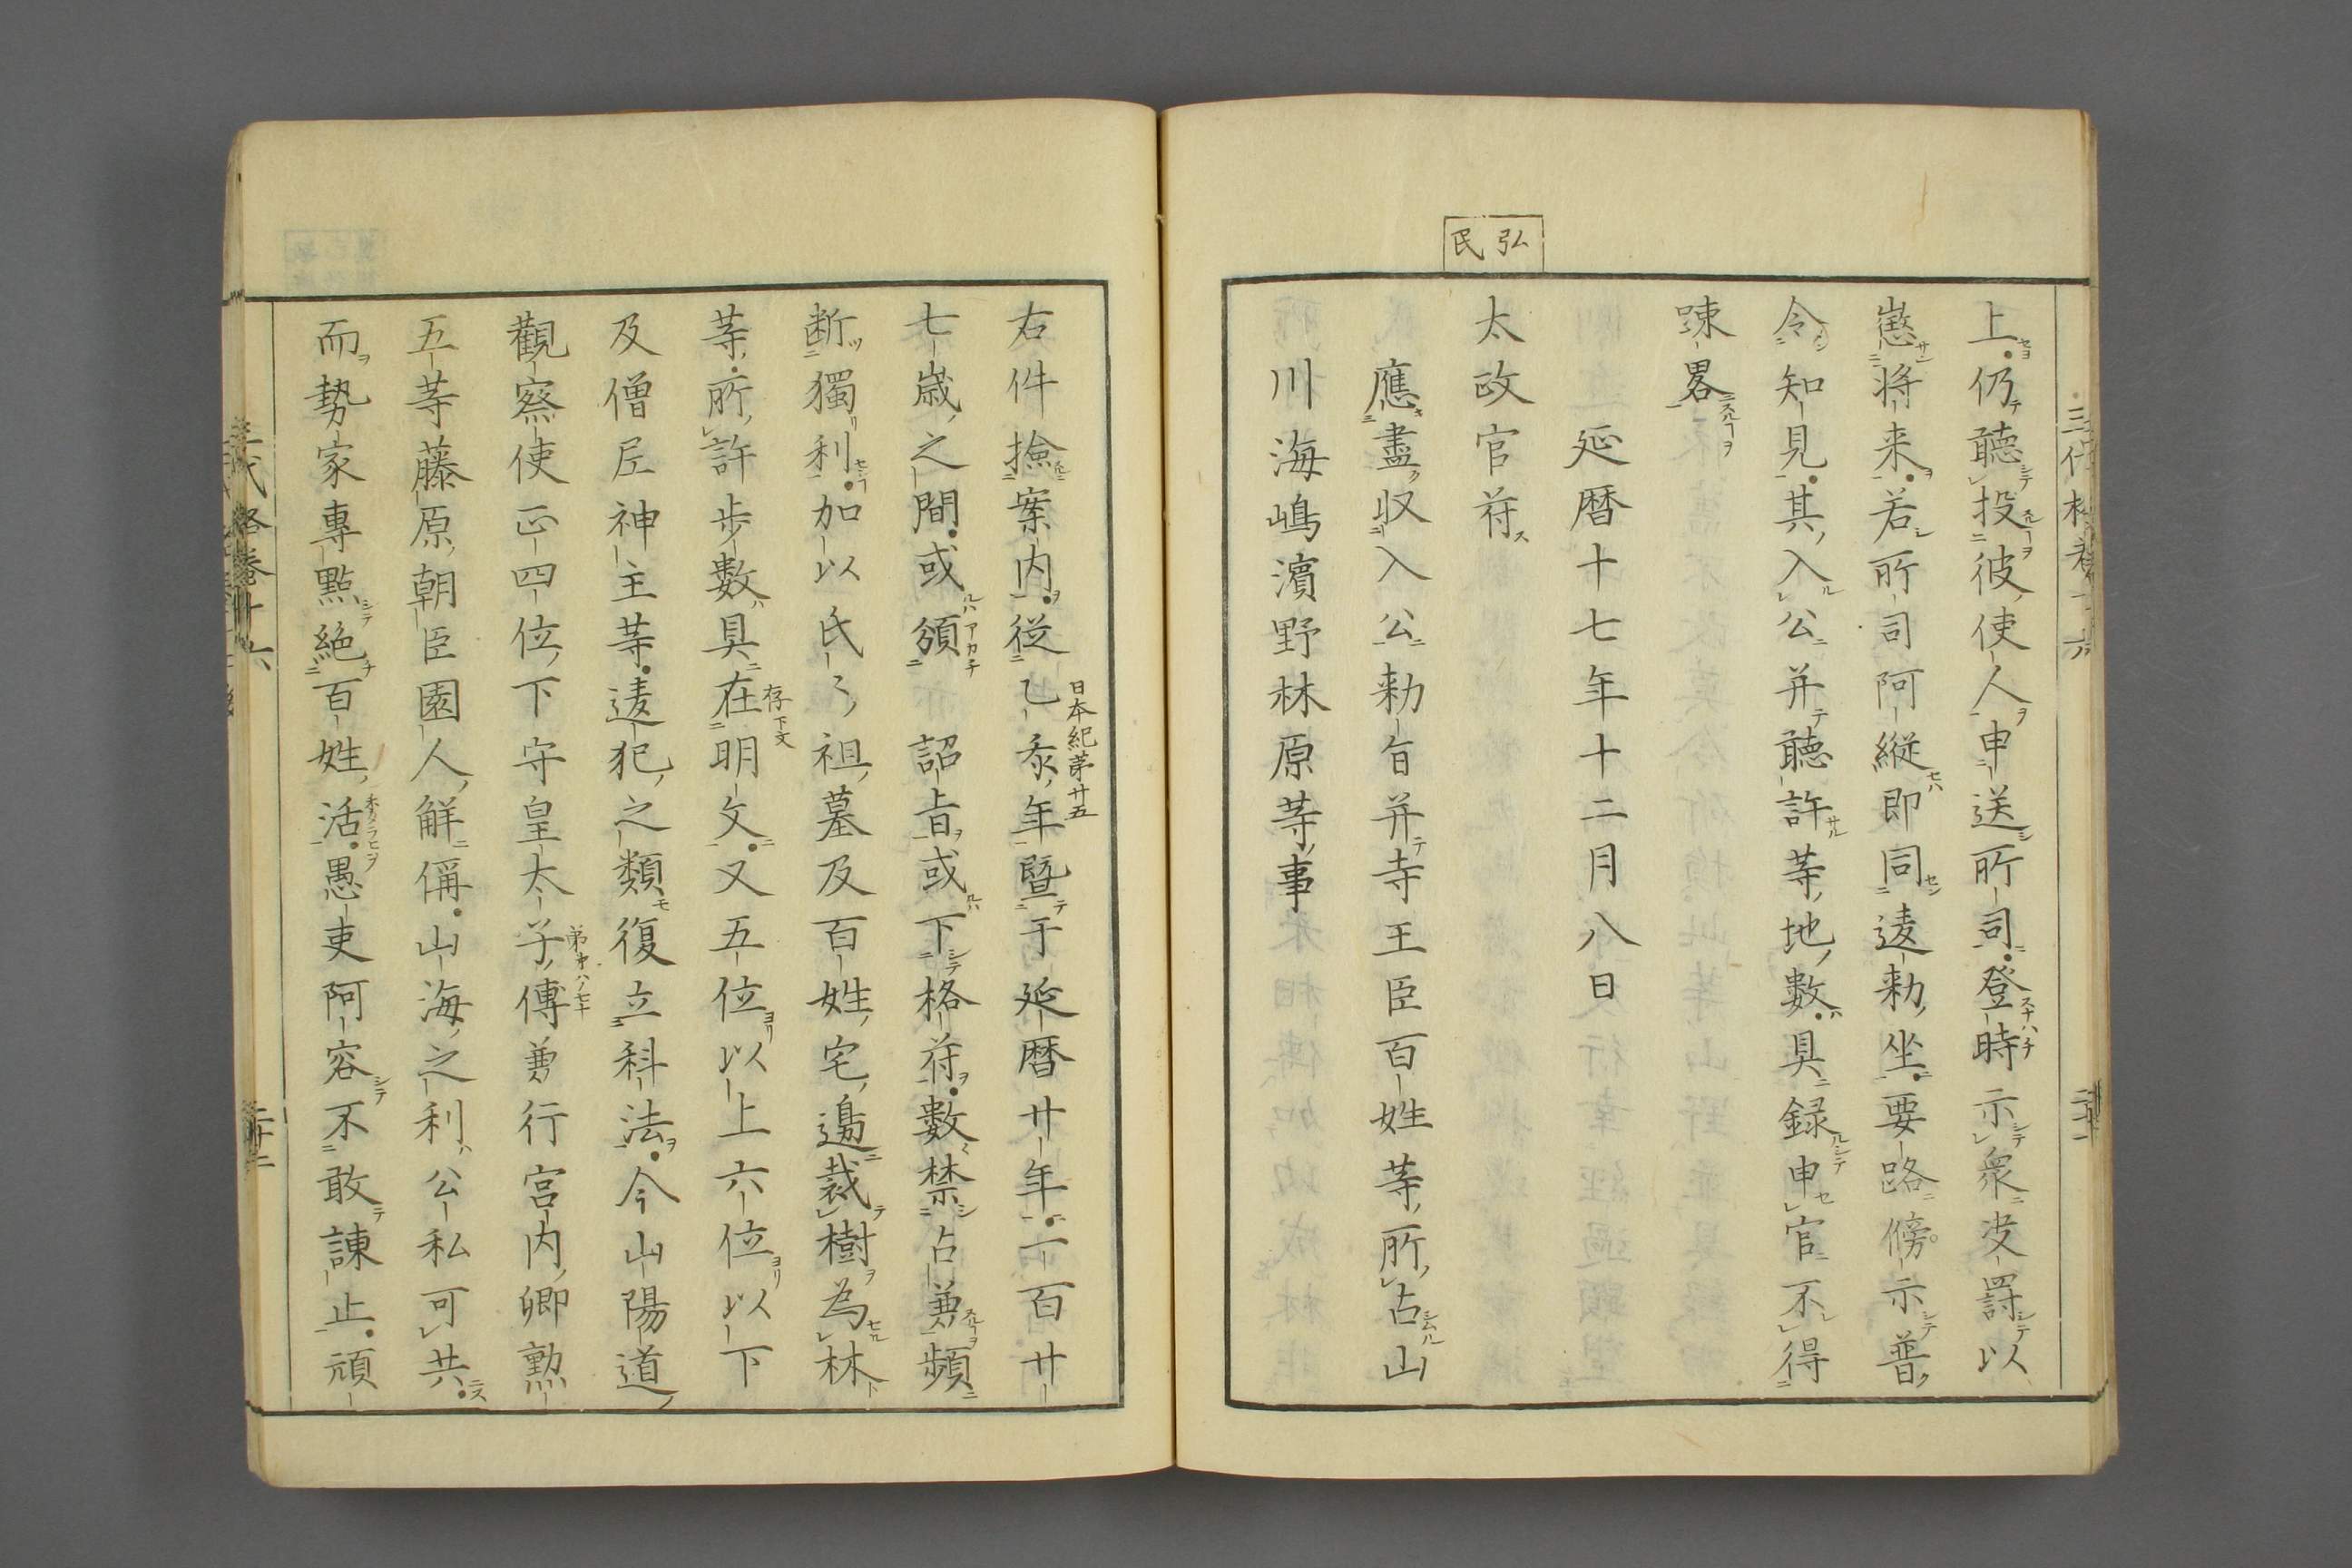 弘民
上仍聴投彼使人申送所司登時示衆决罸以
懲将来若所司阿縦即同違勅坐要路牓示普
令知見其入公并聴許等地數具録申官不得
踈畧
延暦十七年十二月八日
太政官符
應盡収入公勅旨并寺王臣百姓等所占山
川海嶋濱野林原等事
右件撿案内従乙亥年曁于延暦廿年一百廿
日本紀苐廿五
七歳之間或頒詔旨或下格符數禁占兼頻
断獨利加以氏〻祖墓及百姓宅邉裁樹為林
等所許歩數具在明文又五位以上六位以下
存下文
及僧尼神主等違犯之類復立科法今山陽道
觀察使正四位下守皇太子傳兼行宮内卿勲
五等藤原朝臣園人觧偁山海之利公私可共
而勢家專點絶百姓活愚吏阿容不敢諌止頑
三代格巻十六